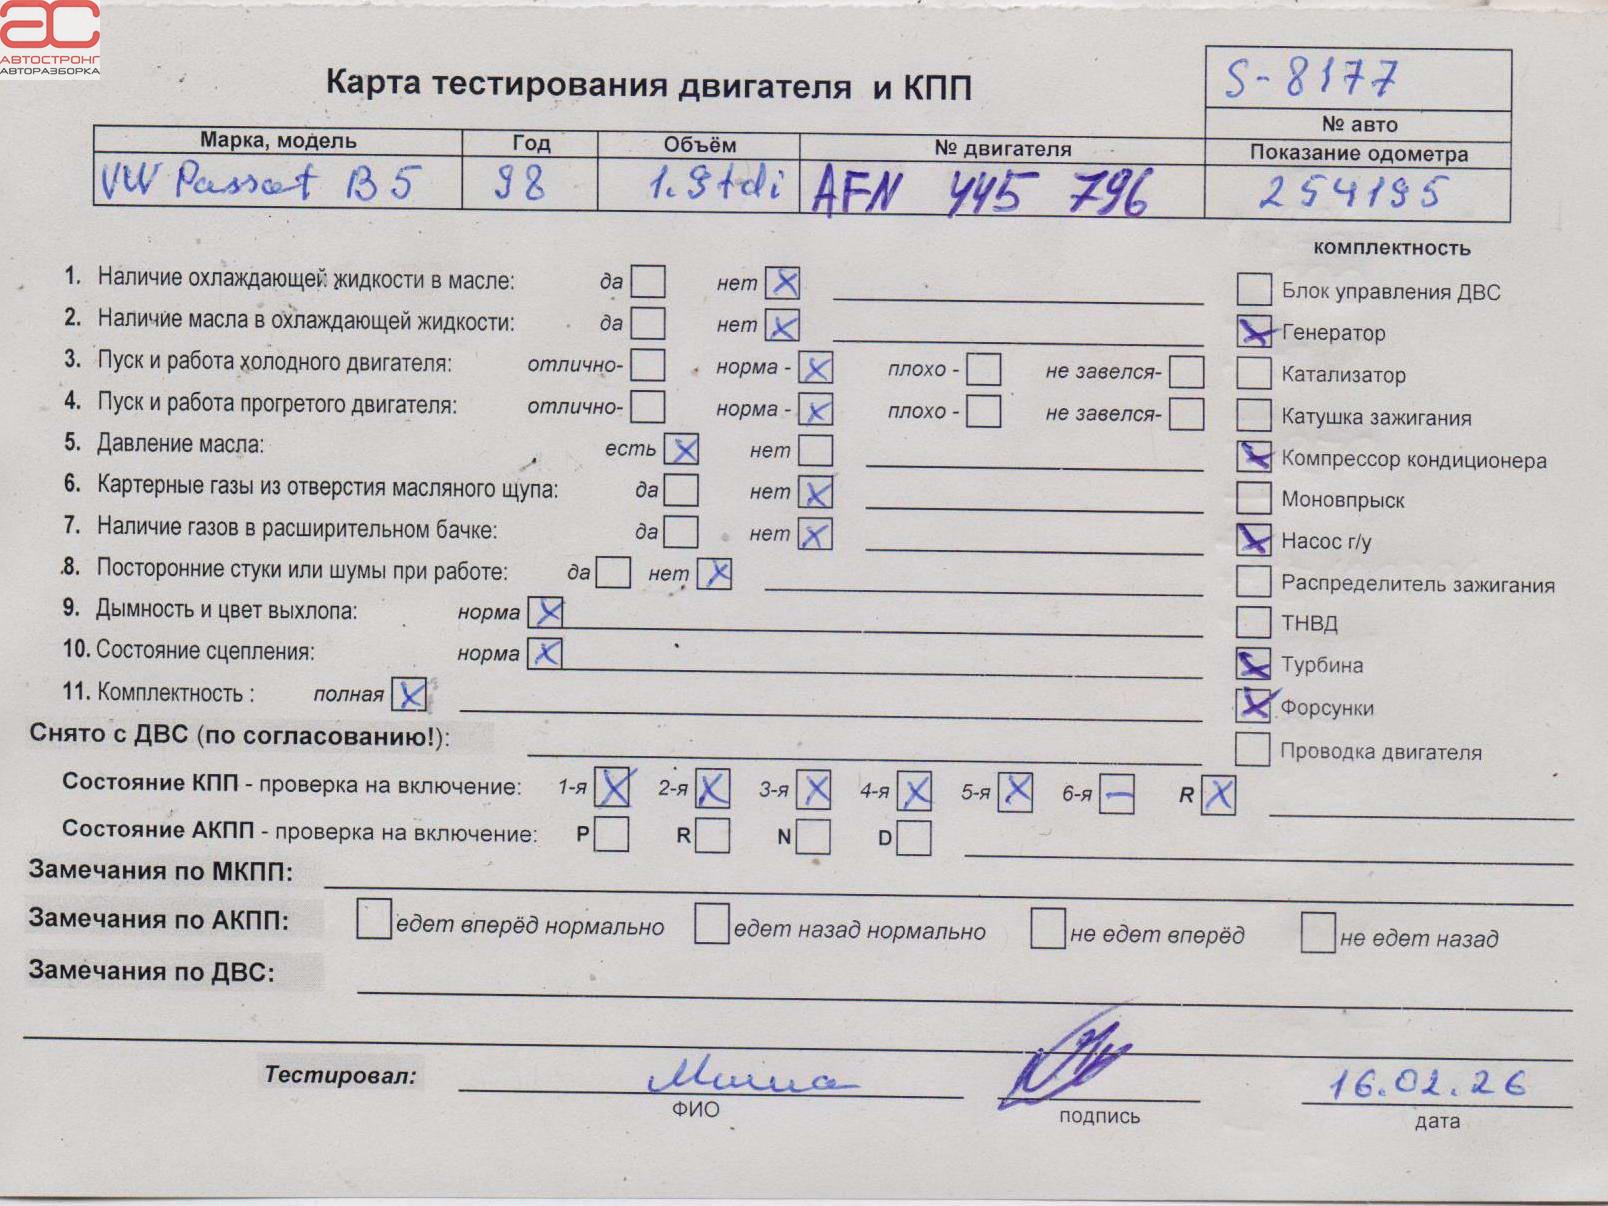 АС
АВТОСТРОНГ
АВТОРАЗБОРКА
Карта тестирования двигателя и КПП
S-8177
№ авто
Марка, модель Год Объём № двигателя Показание одометра
VW Passat B5 98 1.9tdi AFN 445 796 254195
комплектность
1. Наличие охлаждающей жидкости в масле: да нет X
Блок управления ДВС
2. Наличие масла в охлаждающей жидкости: да нет X
X Генератор
3. Пуск и работа холодного двигателя: отлично- норма - X плохо - не завелся-
Катализатор
4. Пуск и работа прогретого двигателя: отлично- норма - X плохо - не завелся-
Катушка зажигания
5. Давление масла: есть X нет
X Компрессор кондиционера
6. Картерные газы из отверстия масляного щупа: да нет X
Моновпрыск
7. Наличие газов в расширительном бачке: да нет X
X Насос г/у
8. Посторонние стуки или шумы при работе: да нет X
Распределитель зажигания
9. Дымность и цвет выхлопа: норма X
ТНВД
10. Состояние сцепления: норма X
X Турбина
11. Комплектность : полная X
X Форсунки
Снято с ДВС (по согласованию!):
Проводка двигателя
Состояние КПП - проверка на включение: 1-я X 2-я X 3-я X 4-я X 5-я X 6-я – R X
Состояние АКПП - проверка на включение: P R N D
Замечания по МКПП:
Замечания по АКПП: едет вперёд нормально едет назад нормально не едет вперёд не едет назад
Замечания по ДВС:
Тестировал: Миша 16.02.26
ФИО подпись дата